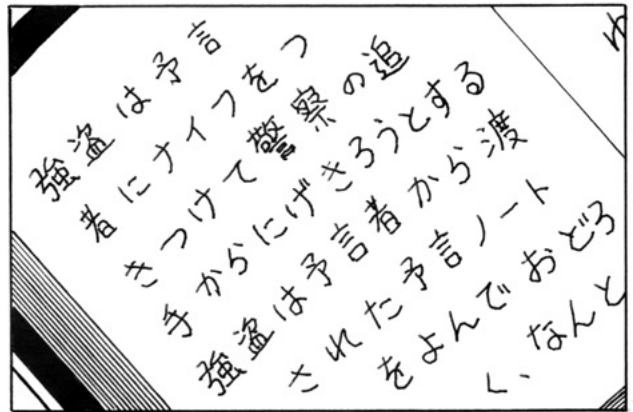 強盗は予言
者にナイフをつ
きつけて警察の追
手からにげさろうとする
強盗は予言者から渡
された予言ノート
をよんでおどろ
く、なんと
ゆ